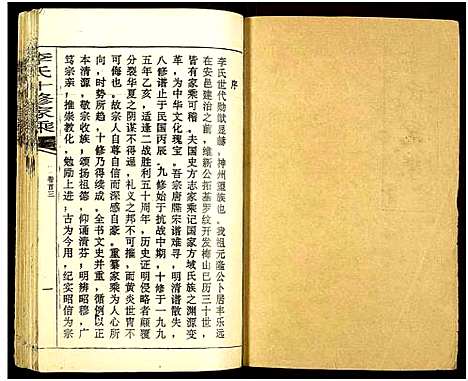 序
李氏世代勋猷显赫，神州望族也。我祖元隆公卜居丰乐远
在安邑建治之前，维新公拓基罗纹开发梅山已历三十世，
皆有家乘可稽。夫国史方志家乘记国家方域氏族之渊源变
革，为中华文化瑰宝。吾宗唐牒宋谱难寻，明清谱散失，
八修谱止于民国丙辰。九修始于抗战中期，十修于一九九
五年乙亥，适逢二战胜利五十周年，历史证明侵略者颠覆
分裂华夏之阴谋不得逞，礼义之邦不可摧，而黄炎世胄不
可侮也。故宗人自尊自信而深感自豪。重纂家乘为人心所
向，时势所趋，十修乃得续成，全书文史并重，循例以正
本清源，敬宗收族，颂扬祖德，仰诵清芬，明辨昭穆，广
笃宗亲，推崇教化，勉励上进；古为今用，纪实昭信为宗
李氏十修家乘
卷首三
一